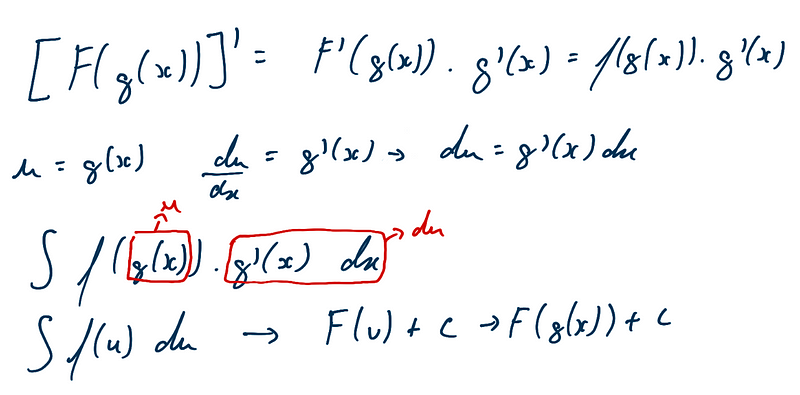 [F(g(x))]' = F'(g(x)) · g'(x) = f(g(x)) · g'(x)
u = g(x) du/dx = g'(x) → du = g'(x) dx
u
∫ f(g(x)) · g'(x) dx → du
∫ f(u) du → F(u) + c → F(g(x)) + c